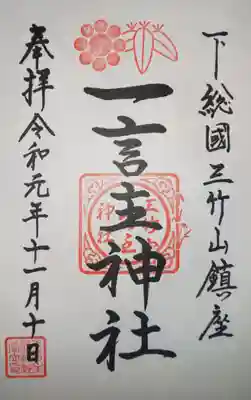 下総國三竹山鎮座
一言主神社
奉拝令和元年十一月十日